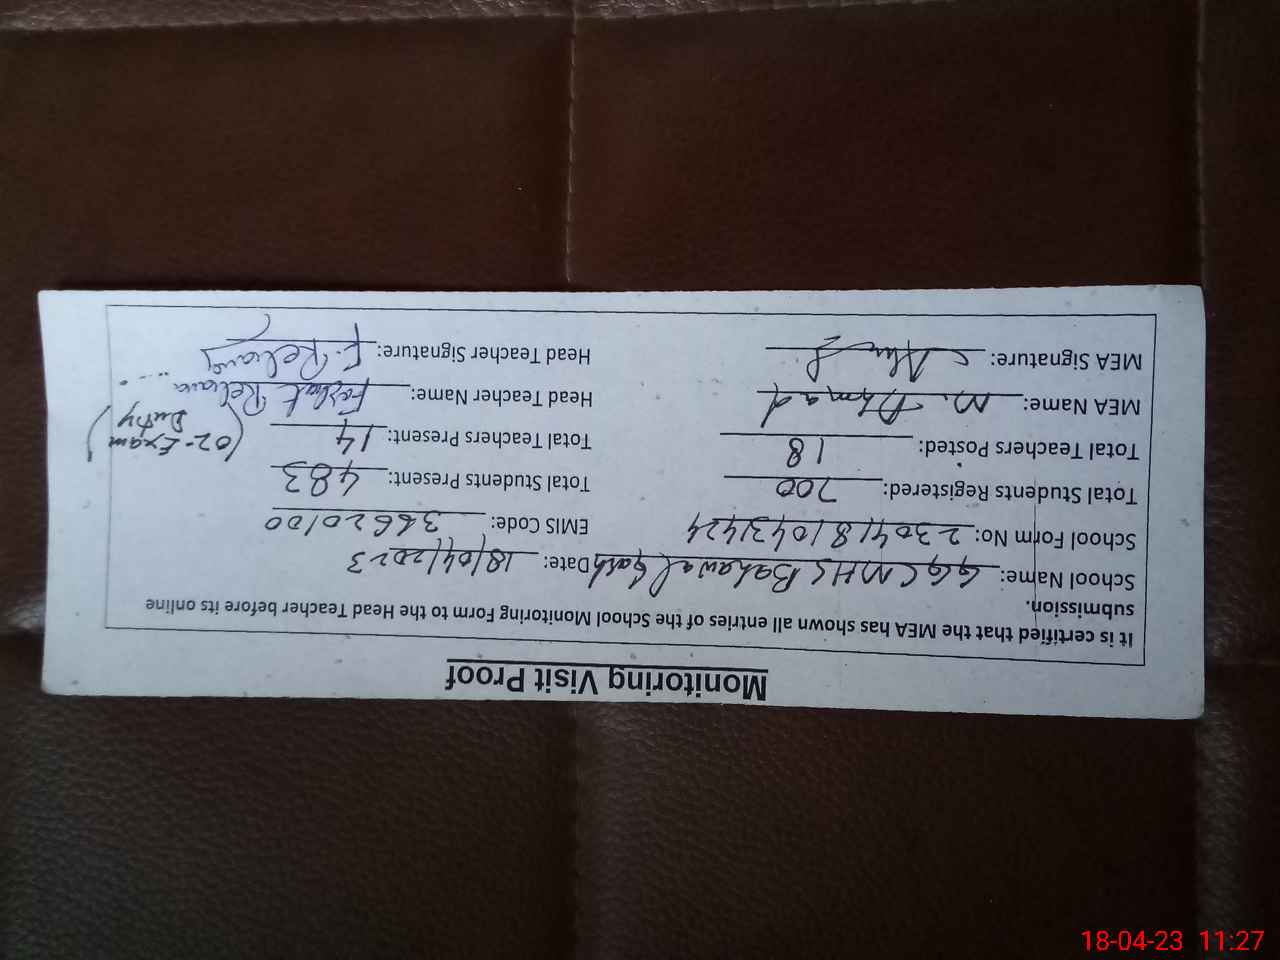 Monitoring Visit Proof
It is certified that the MEA has shown all entries of the School Monitoring Form to the Head Teacher before its online
submission.
School Name: GGCMHS Bahawal Garh Date: 18/04/2023
School Form No: 23041810431424 EMIS Code: 36620100
Total Students Registered: 700 Total Students Present: 483
Total Teachers Posted: 18 Total Teachers Present: 14 (02-Exam Duty)
MEA Name: M. Ahmad Head Teacher Name: Farhat
MEA Signature: Head Teacher Signature:
18-04-23 11:27